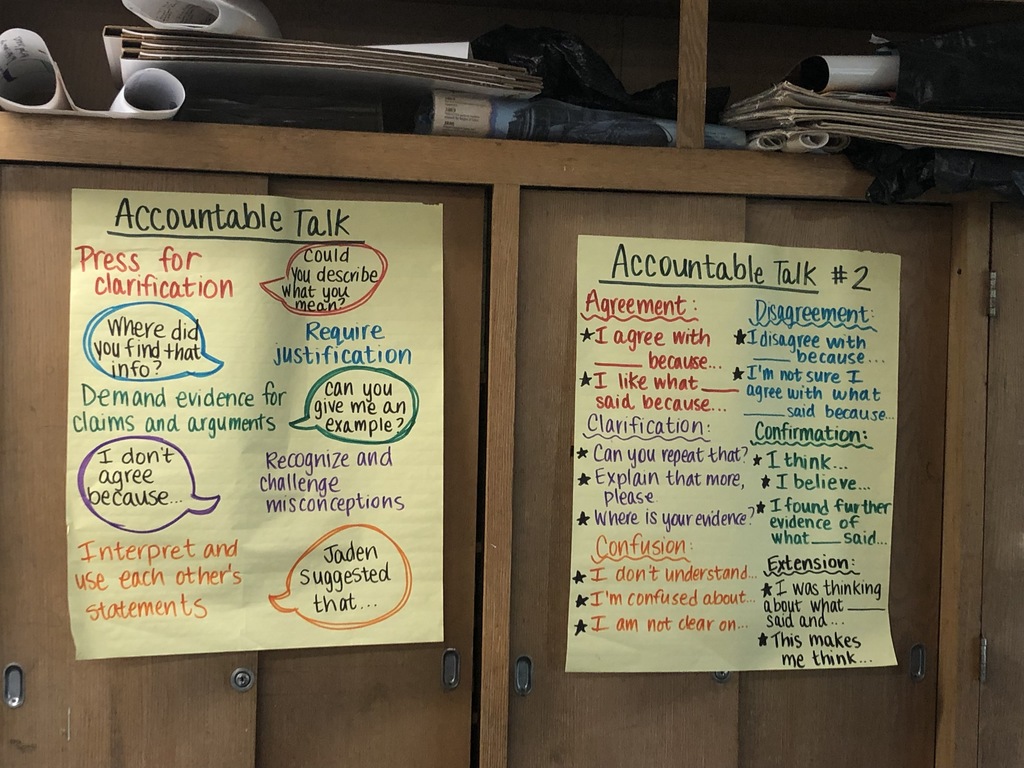 Accountable Talk
Press for
clarification
Could
you describe
what you
mean?
Where did
you find that
info?
Require
justification
Demand evidence for
claims and arguments
can you
give me an
example?
I don't
agree
because...
Recognize and
challenge
misconceptions
Interpret and
use each other's
statements
Jaden
suggested
that...
Accountable Talk #2
Agreement:
★ I agree with
____ because...
★ I like what ____
said because...
Clarification:
★ Can you repeat that?
★ Explain that more,
please
★ Where is your evidence?
Confusion:
★ I don't understand...
★ I'm confused about...
★ I am not clear on...
Disagreement:
★ I disagree with
____ because...
★ I'm not sure I
agree with what
____ said because...
Confirmation:
★ I think...
★ I believe...
★ I found further
evidence of
what ____ said...
Extension:
★ I was thinking
about what ____
said and...
★ This makes
me think...